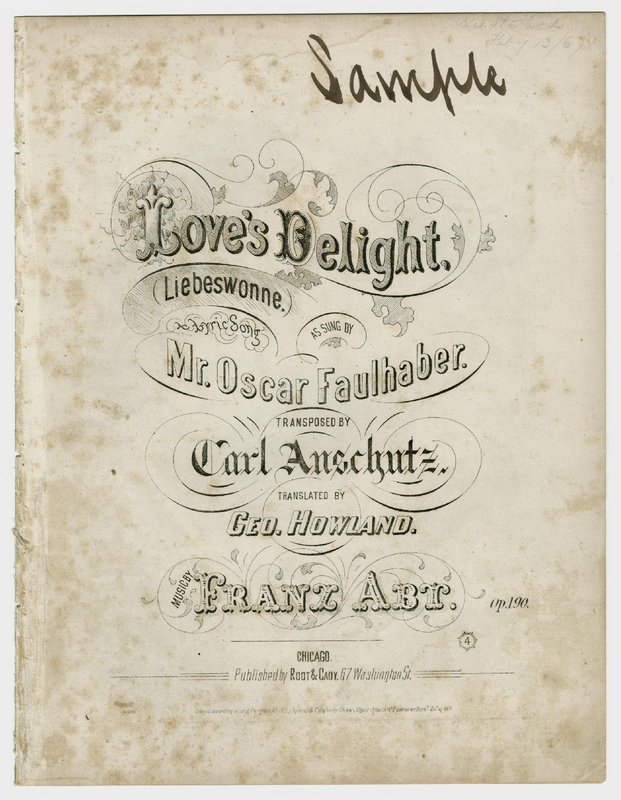 Sample
Love's Delight.
(Liebeswonne.)
A Lyric Song
AS SUNG BY
Mr. Oscar Faulhaber.
TRANSPOSED BY
Carl Anschutz.
TRANSLATED BY
GEO. HOWLAND.
MUSIC BY
FRANZ ABT.
Op. 190.
4
CHICAGO.
Published by ROOT & CADY, 67 Washington St.